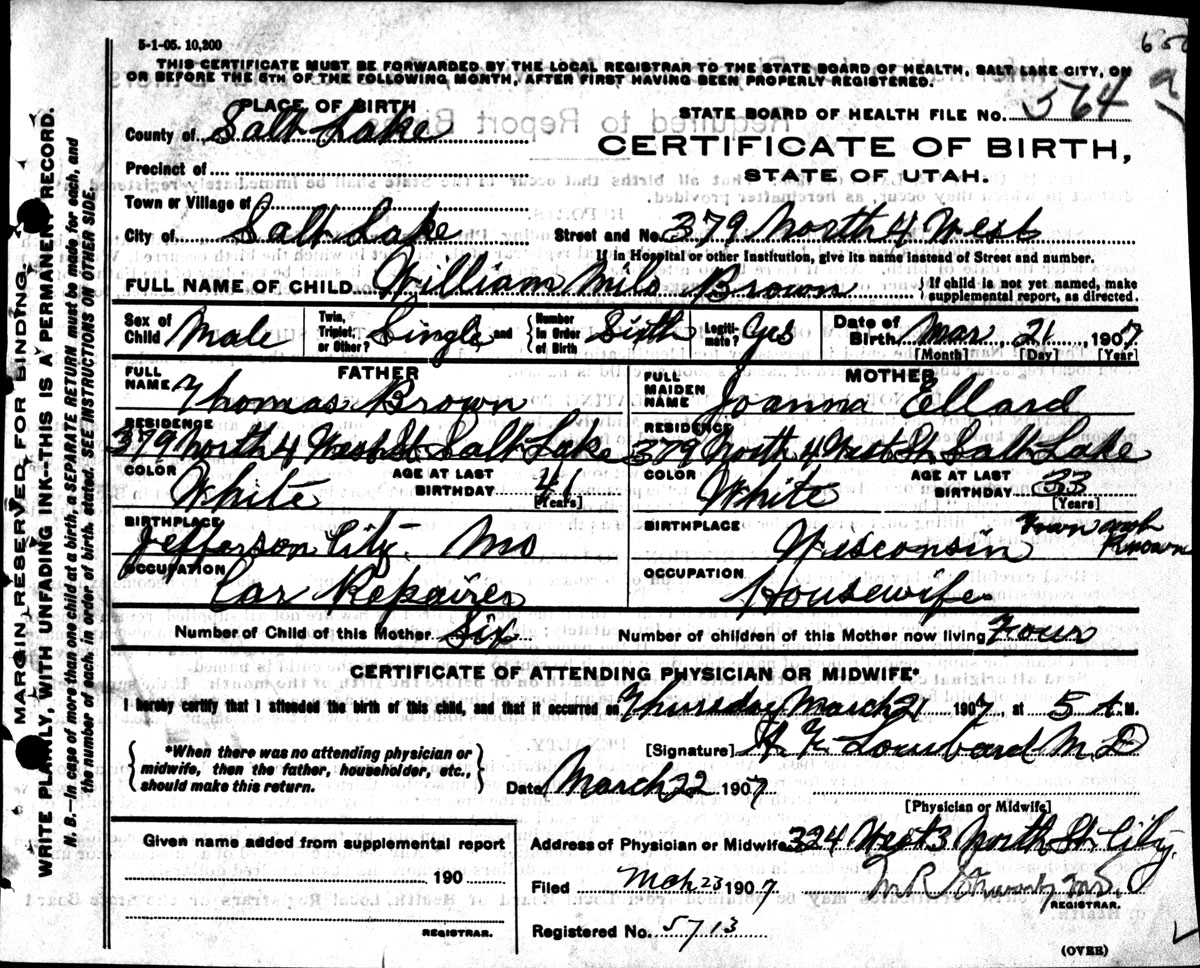 5-1-05. 10,200
THIS CERTIFICATE MUST BE FORWARDED BY THE LOCAL REGISTRAR TO THE STATE BOARD OF HEALTH, SALT LAKE CITY, ON
OR BEFORE THE 5TH OF THE FOLLOWING MONTH, AFTER FIRST HAVING BEEN PROPERLY REGISTERED.
PLACE OF BIRTH
STATE BOARD OF HEALTH FILE No. 564
County of Salt Lake
CERTIFICATE OF BIRTH,
Precinct of
STATE OF UTAH.
Town or Village of
City of Salt Lake Street and No. 379 North 4 West
If in Hospital or other Institution, give its name instead of Street and number.
FULL NAME OF CHILD William Milo Brown { If child is not yet named, make
supplemental report, as directed.
Sex of Child Male Twin, Triplet, or Other? Single and { Number in Order of Birth Sixth Legiti-mate? Yes Date of Birth Mar 21, 1907
[Month] [Day] [Year]
FATHER MOTHER
FULL NAME Thomas Brown FULL MAIDEN NAME Joanna Ellard
RESIDENCE 379 North 4 West St Salt Lake RESIDENCE 379 North 4 West St Salt Lake
COLOR White AGE AT LAST BIRTHDAY 41 [Years] COLOR White AGE AT LAST BIRTHDAY 33 [Years]
BIRTHPLACE Jefferson City Mo BIRTHPLACE Wisconsin Town not Known
OCCUPATION Car Repairer OCCUPATION Housewife
Number of Child of this Mother Six Number of children of this Mother now living Four
CERTIFICATE OF ATTENDING PHYSICIAN OR MIDWIFE*
I hereby certify that I attended the birth of this child, and that it occurred on Thursday March 21 1907, at 5 A. M.
{ *When there was no attending physician or
midwife, then the father, householder, etc.,
should make this return. }
[Signature] Lombard M D
Date March 22 1907
[Physician or Midwife]
Given name added from supplemental report
Address of Physician or Midwife 324 West 3 North St City.
190
Filed Mch 23 1907 M R M.D.
REGISTRAR.
REGISTRAR.
Registered No. 5713
(OVER)
MARGIN RESERVED FOR BINDING.
WRITE PLAINLY, WITH UNFADING INK--THIS IS A PERMANENT RECORD.
N. B.--In case of more than one child at a birth, a SEPARATE RETURN must be made for each, and
the number of each, in order of birth, stated. SEE INSTRUCTIONS ON OTHER SIDE.